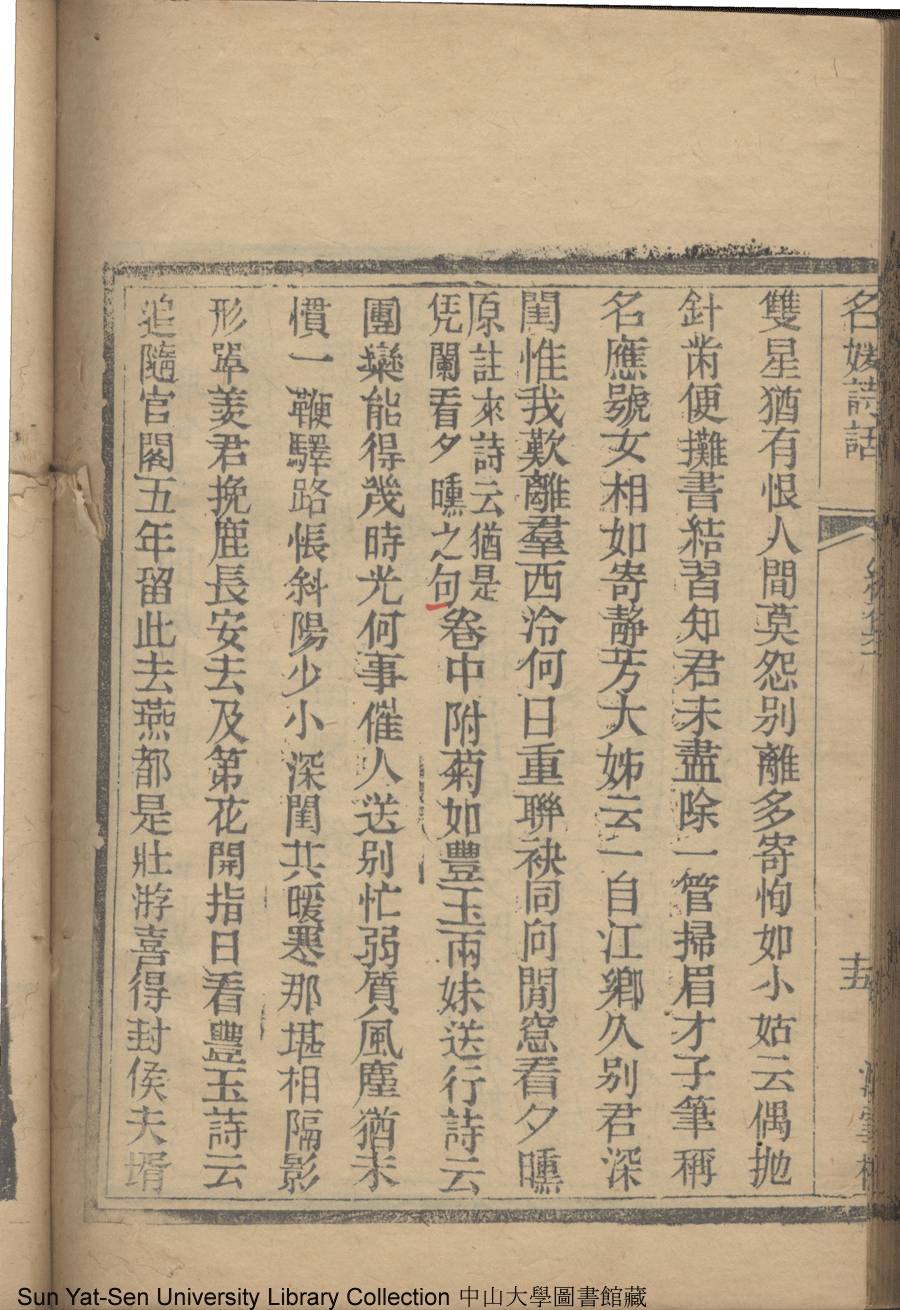 名媛詩話
雙星猶有恨人間莫怨別離多寄恂如小姑云偶拋
針黹便攤書結習知君未盡除一管掃眉才子筆稱
名應號女相如寄靜芳大姊云一自江鄉久別君深
閨惟我歎離羣西泠何日重聯袂同向閒窓看夕曛
原註來詩云猶是
凭闌看夕曛之句
卷中附菊如豐玉兩妹送行詩云
團欒能得幾時光何事催人送别忙弱質風塵猶未
慣一鞭驛路悵斜陽少小深閨共暖寒那堪相隔影
形單羨君挽鹿長安去及第花開指日看豐玉詩云
追隨官閣五年留此去燕都是壯游喜得封侯夫壻
Sun Yat-Sen University Library Collection 中山大學圖書館藏